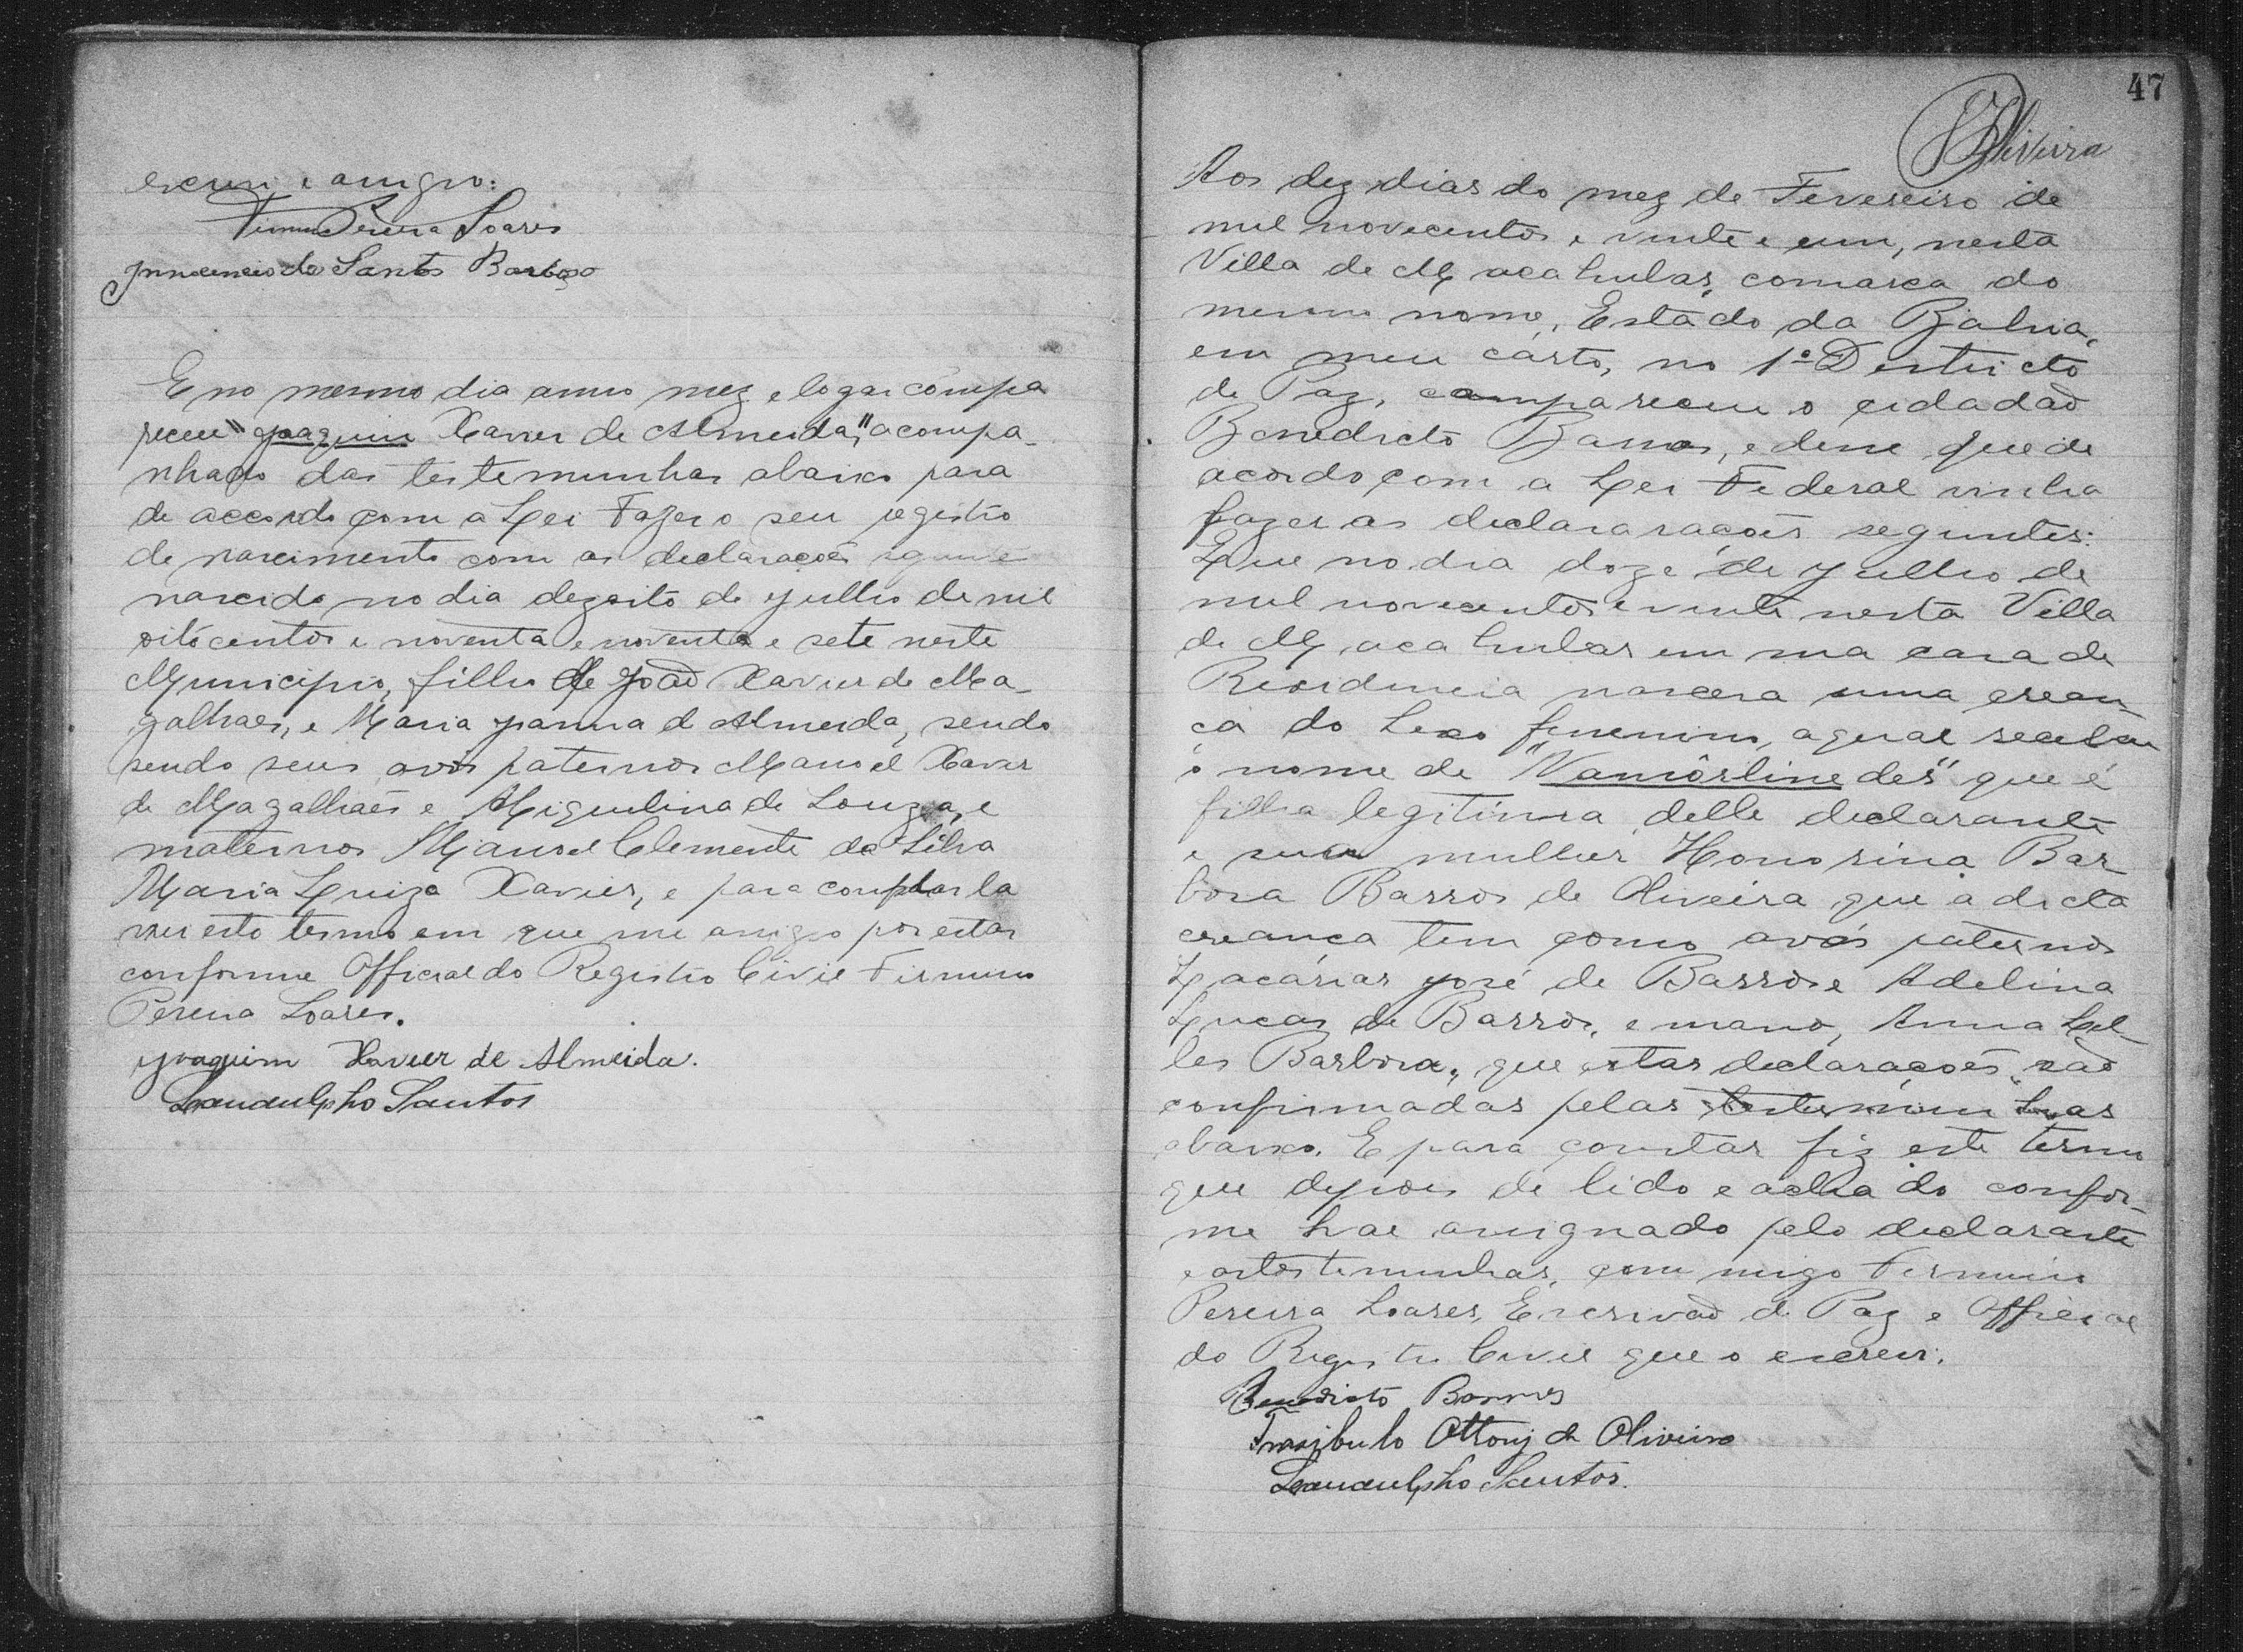 escrevi e assigno:
Firmino Pereira Soares
Innocencio dos Santos Barbosa
E no mesmo dia anno mez e logar compa
receu "Joaquim Xavier de Almeida," acompa-
nhado das testemunhas abaixo para
de accordo com a Lei Fazer o seu registro
de nascimento com as declarações seguintes
nascido no dia dezoito de Julho de mil
oitocentos e noventa e noventa e sete neste
Municipio, filho de João Xavier de Ma-
galhaes, e Maria Joanna d Almeida, sendo
sendo seus avós paternos Manoel Xavier
de Magalhães e Miguelina de Souza, e
maternos Manoel Clemente da Silva
Maria Luiza Xavier, e para constar la
vrei este termo em que me assigno por estar
conforme Official do Registro Civil Firmino
Pereira Soares.
Joaquim Xavier de Almeida.
Landulpho Santos
47
Oliveira
Aos dez dias do mez de Fevereiro de
mil novecentos e vinte e um, nesta
Villa de Macahubas, comarca do
mesmo nome, Estado da Bahia,
em meu carto, no 1º Destricto
de Paz, compareceu o cidadaõ
Benedicto Barros, e disse que de
acordo com a Lei Federal vinha
fazer as declararações seguntes:
Que no dia doze de Julho de
mil novecentos e vinte nesta Villa
de Macahubas em sua casa de
Residencia nascera uma crean-
ça do Sexo femenino, a qual recebeu
o nome de "Vamôrlinedes" que é
filha legitima delle declarante
e sua mulher Honorina Bar
bosa Barros de Oliveira que a dicta
creança tem como avós paternos
Zacárias José de Barros e Adelina
Lucas de Barros, e mano, Anna Lel
les Barbosa, que estas declarações saõ
confirmadas pelas testemunhas
abaixo. E para constar fiz este termo
que depois de lido e achado confor-
me vae assignado pelo declarante
e as testemunhas, com migo Firmino
Pereira Soares, Escrivaõ de Paz e Official
do Registro Civil que o escrevi.
Benedicto Barros
Trazibulo Ottonj de Oliveira
Landulpho Santos.